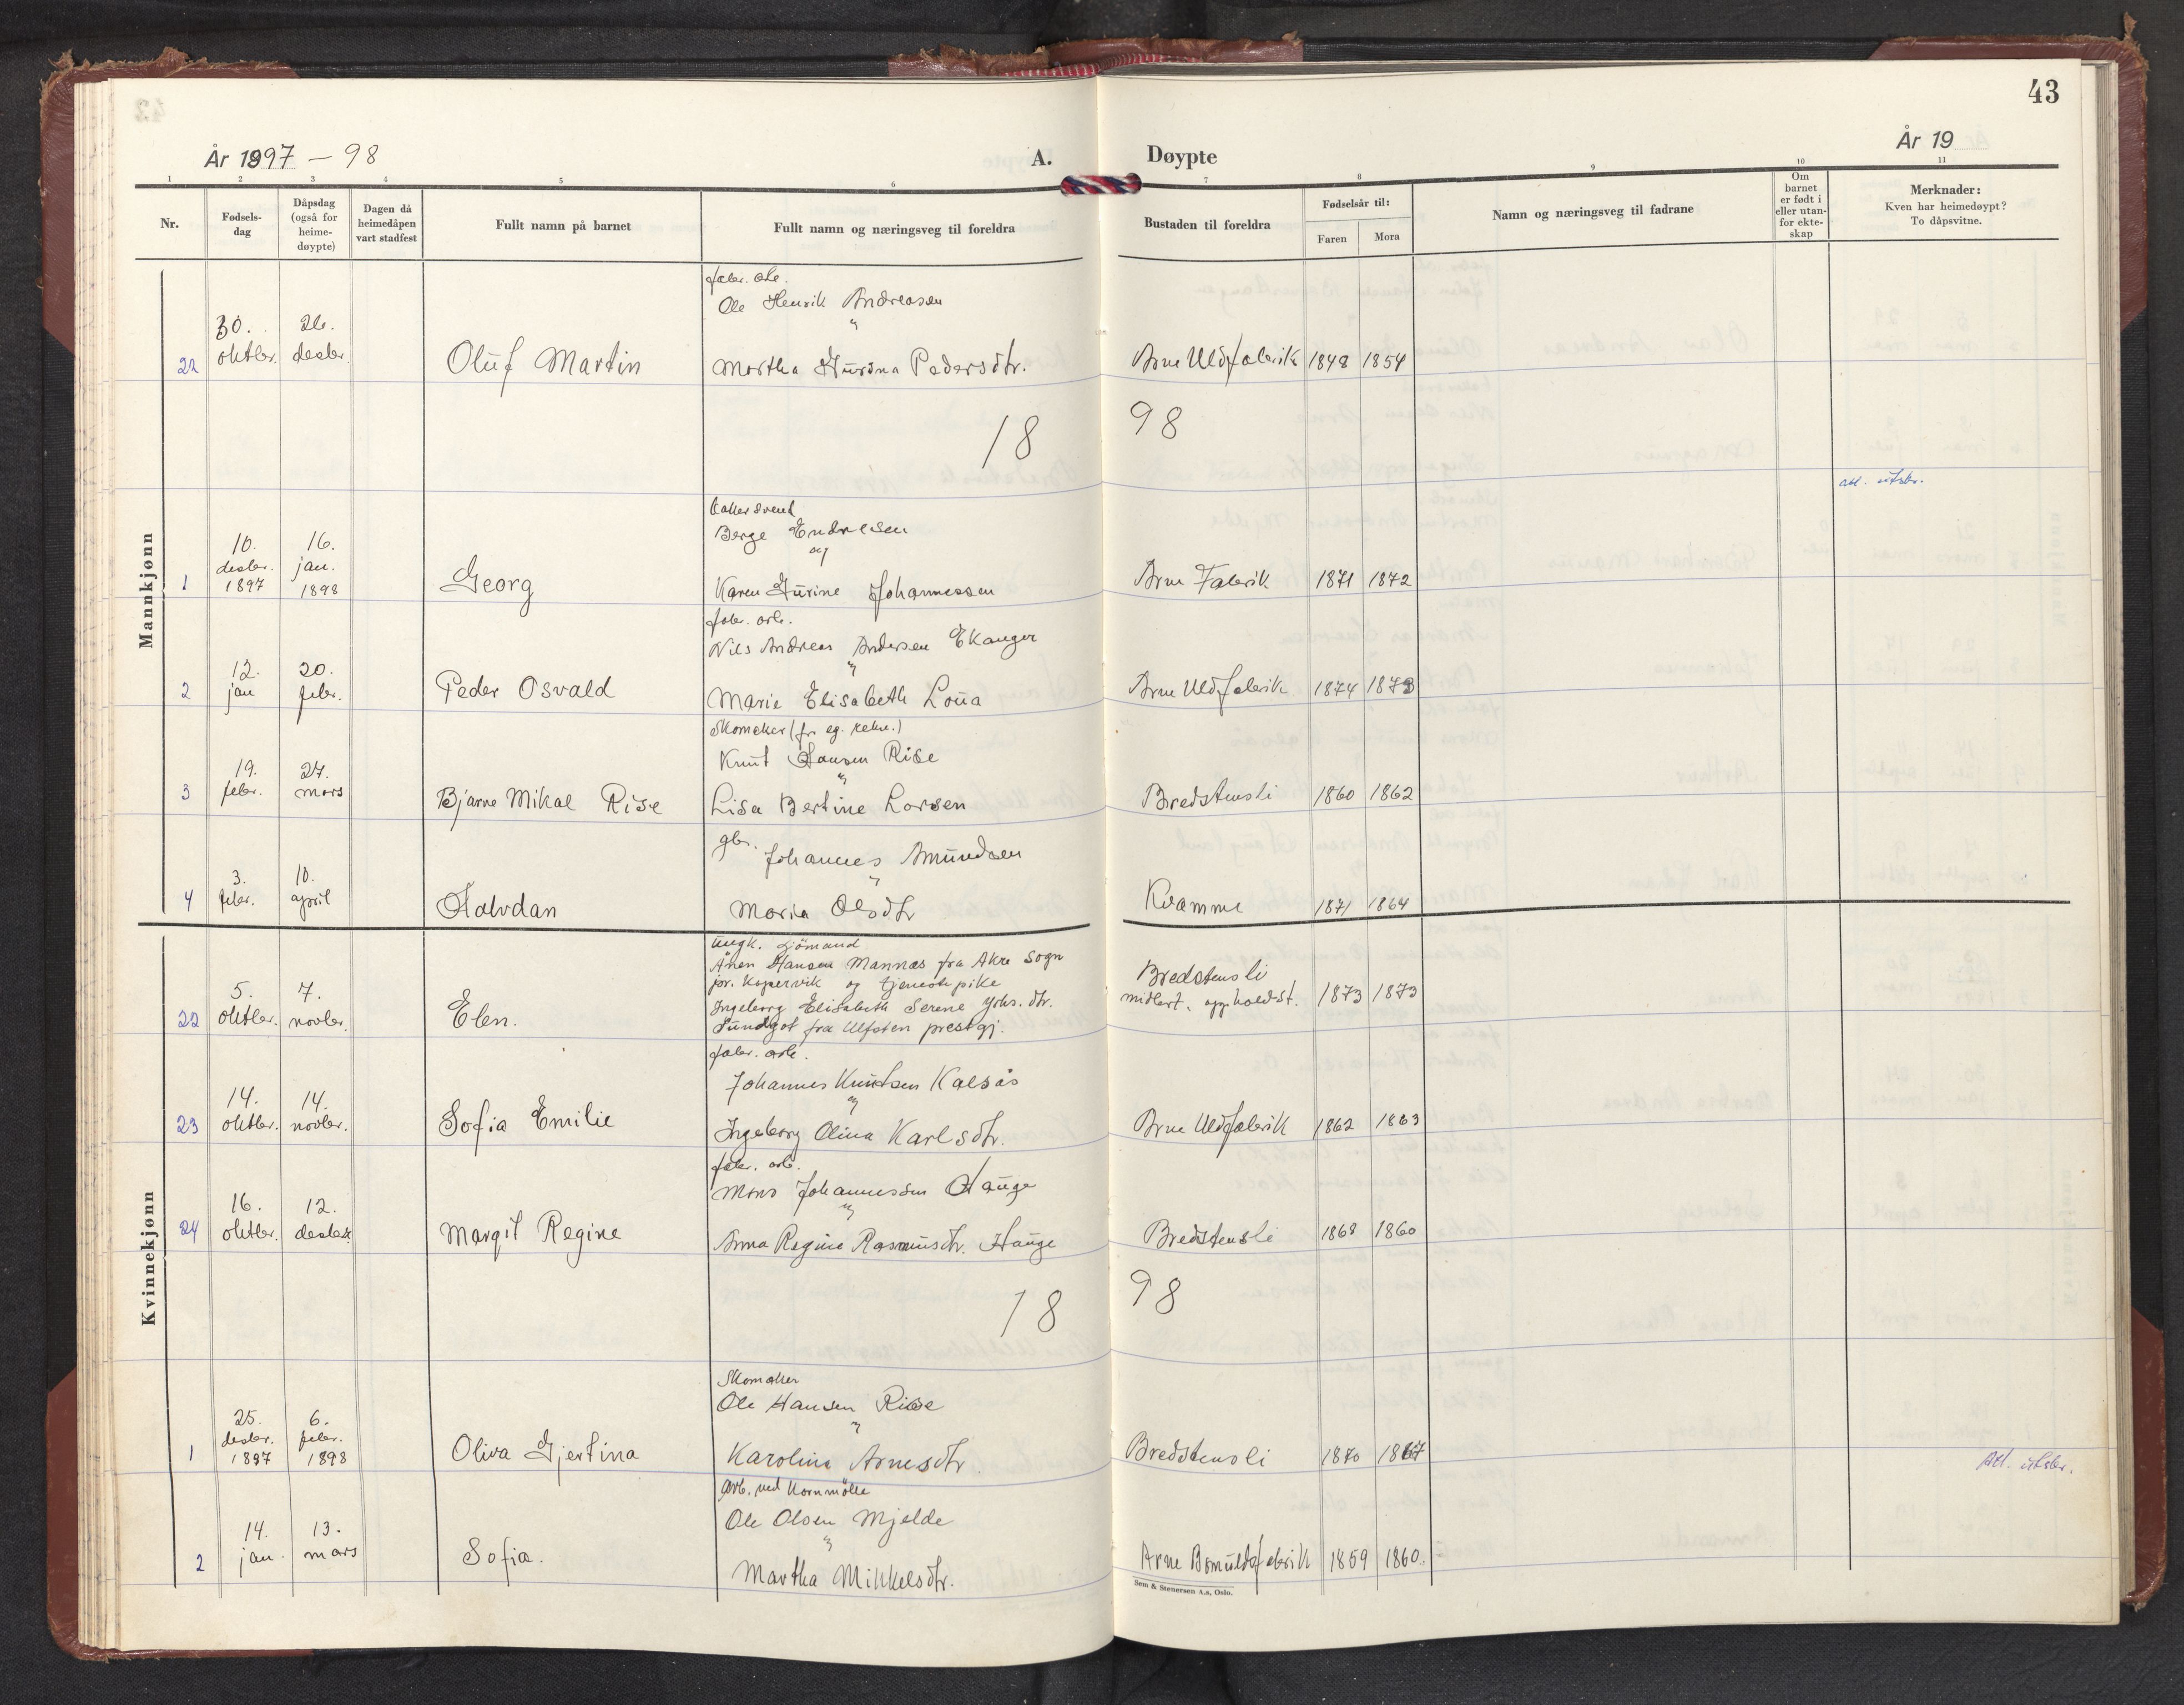 43
År 1897 – 98
A.
Døypte
År 19
1 2 3 4 5 6 7 8 9 10 11
Nr.
Fødsels-
dag
Dåpsdag
(også for
heime-
døypte)
Dagen då
heimedåpen
vart stadfest
Fullt namn på barnet
Fullt namn og næringsveg til foreldra
Bustaden til foreldra
Fødselsår til:
Faren Mora
Namn og næringsveg til fadrane
Om
barnet
er født i
eller utan-
for ekte-
skap
Merknader:
Kven har heimedøypt?
To dåpsvitne.
Mannkjønn
fabr. arb.
Ole Henrik Andreasen
30. 26. "
22 oktbr. desbr. Oluf Martin Martha Gurina Pedersdtr. Arne Uldfabrik 1848 1854
18 98
att. utskr.
bakersvend
Berge Endresen
10. 16. og
desbr. jan.
1 1897 1898 Georg Karen Gurine Johannessen Arne Fabrik 1871 1872
fabr. arb.
Nils Andreas Andersen Ekanger
12. 20. "
2 jan febr. Peder Osvald Marie Elisabeth Loua Arne Uldfabrik 1874 1873
Skomaker (for eg. rekn.)
Knut Hansen Rise
19. 27. "
3 febr. mars Bjarne Mikal Rise Lisa Bertine Larsen Bredstensli 1860 1862
gbr.
Johannes Amundsen
3. 10. "
4 febr. april Halvdan Maria Olsdtr Kvamme 1871 1864
Kvinnekjønn
ungk. sjömand
Ånen Hansen Mannes fra Akre Sogn
pr. Kopervik og tjenestepike
Ingeborg Elisabeth Serene Johs. dtr.
Sundgot fra Ulfsten prestgj.
5. 7. Bredstensli
22 oktbr. novbr. Elen. midlert. oppholdst. 1873 1873
fabr. arb.
Johannes Knutsen Kalsås
14. 14. og
23 oktbr. novbr. Sofia Emilie Ingeborg Olina Karlsdtr. Arne Uldfabrik 1862 1863
fabr. arb.
Mons Johannessen Hauge
16. 12. og
24 oktbr. desbr. Margit Regine Anna Regine Rasmusdtr. Hauge Bredstensli 1868 1860
18 98
Skomaker
Ole Hansen Riise
25. 6. "
desbr. febr.
1 1897 1898 Oliva Gjertina Karolina Arnesdtr. Bredstensli 1870 1867 Att. utskr.
Arb. ved Kornmölle
Ole Olsen Mjelde
14. 13. "
2 jan. mars Sofia. Martha Mikkelsdtr. Arne Bomuldsfabrik 1859 1860.
Sem & Stenersen A.s, Oslo.